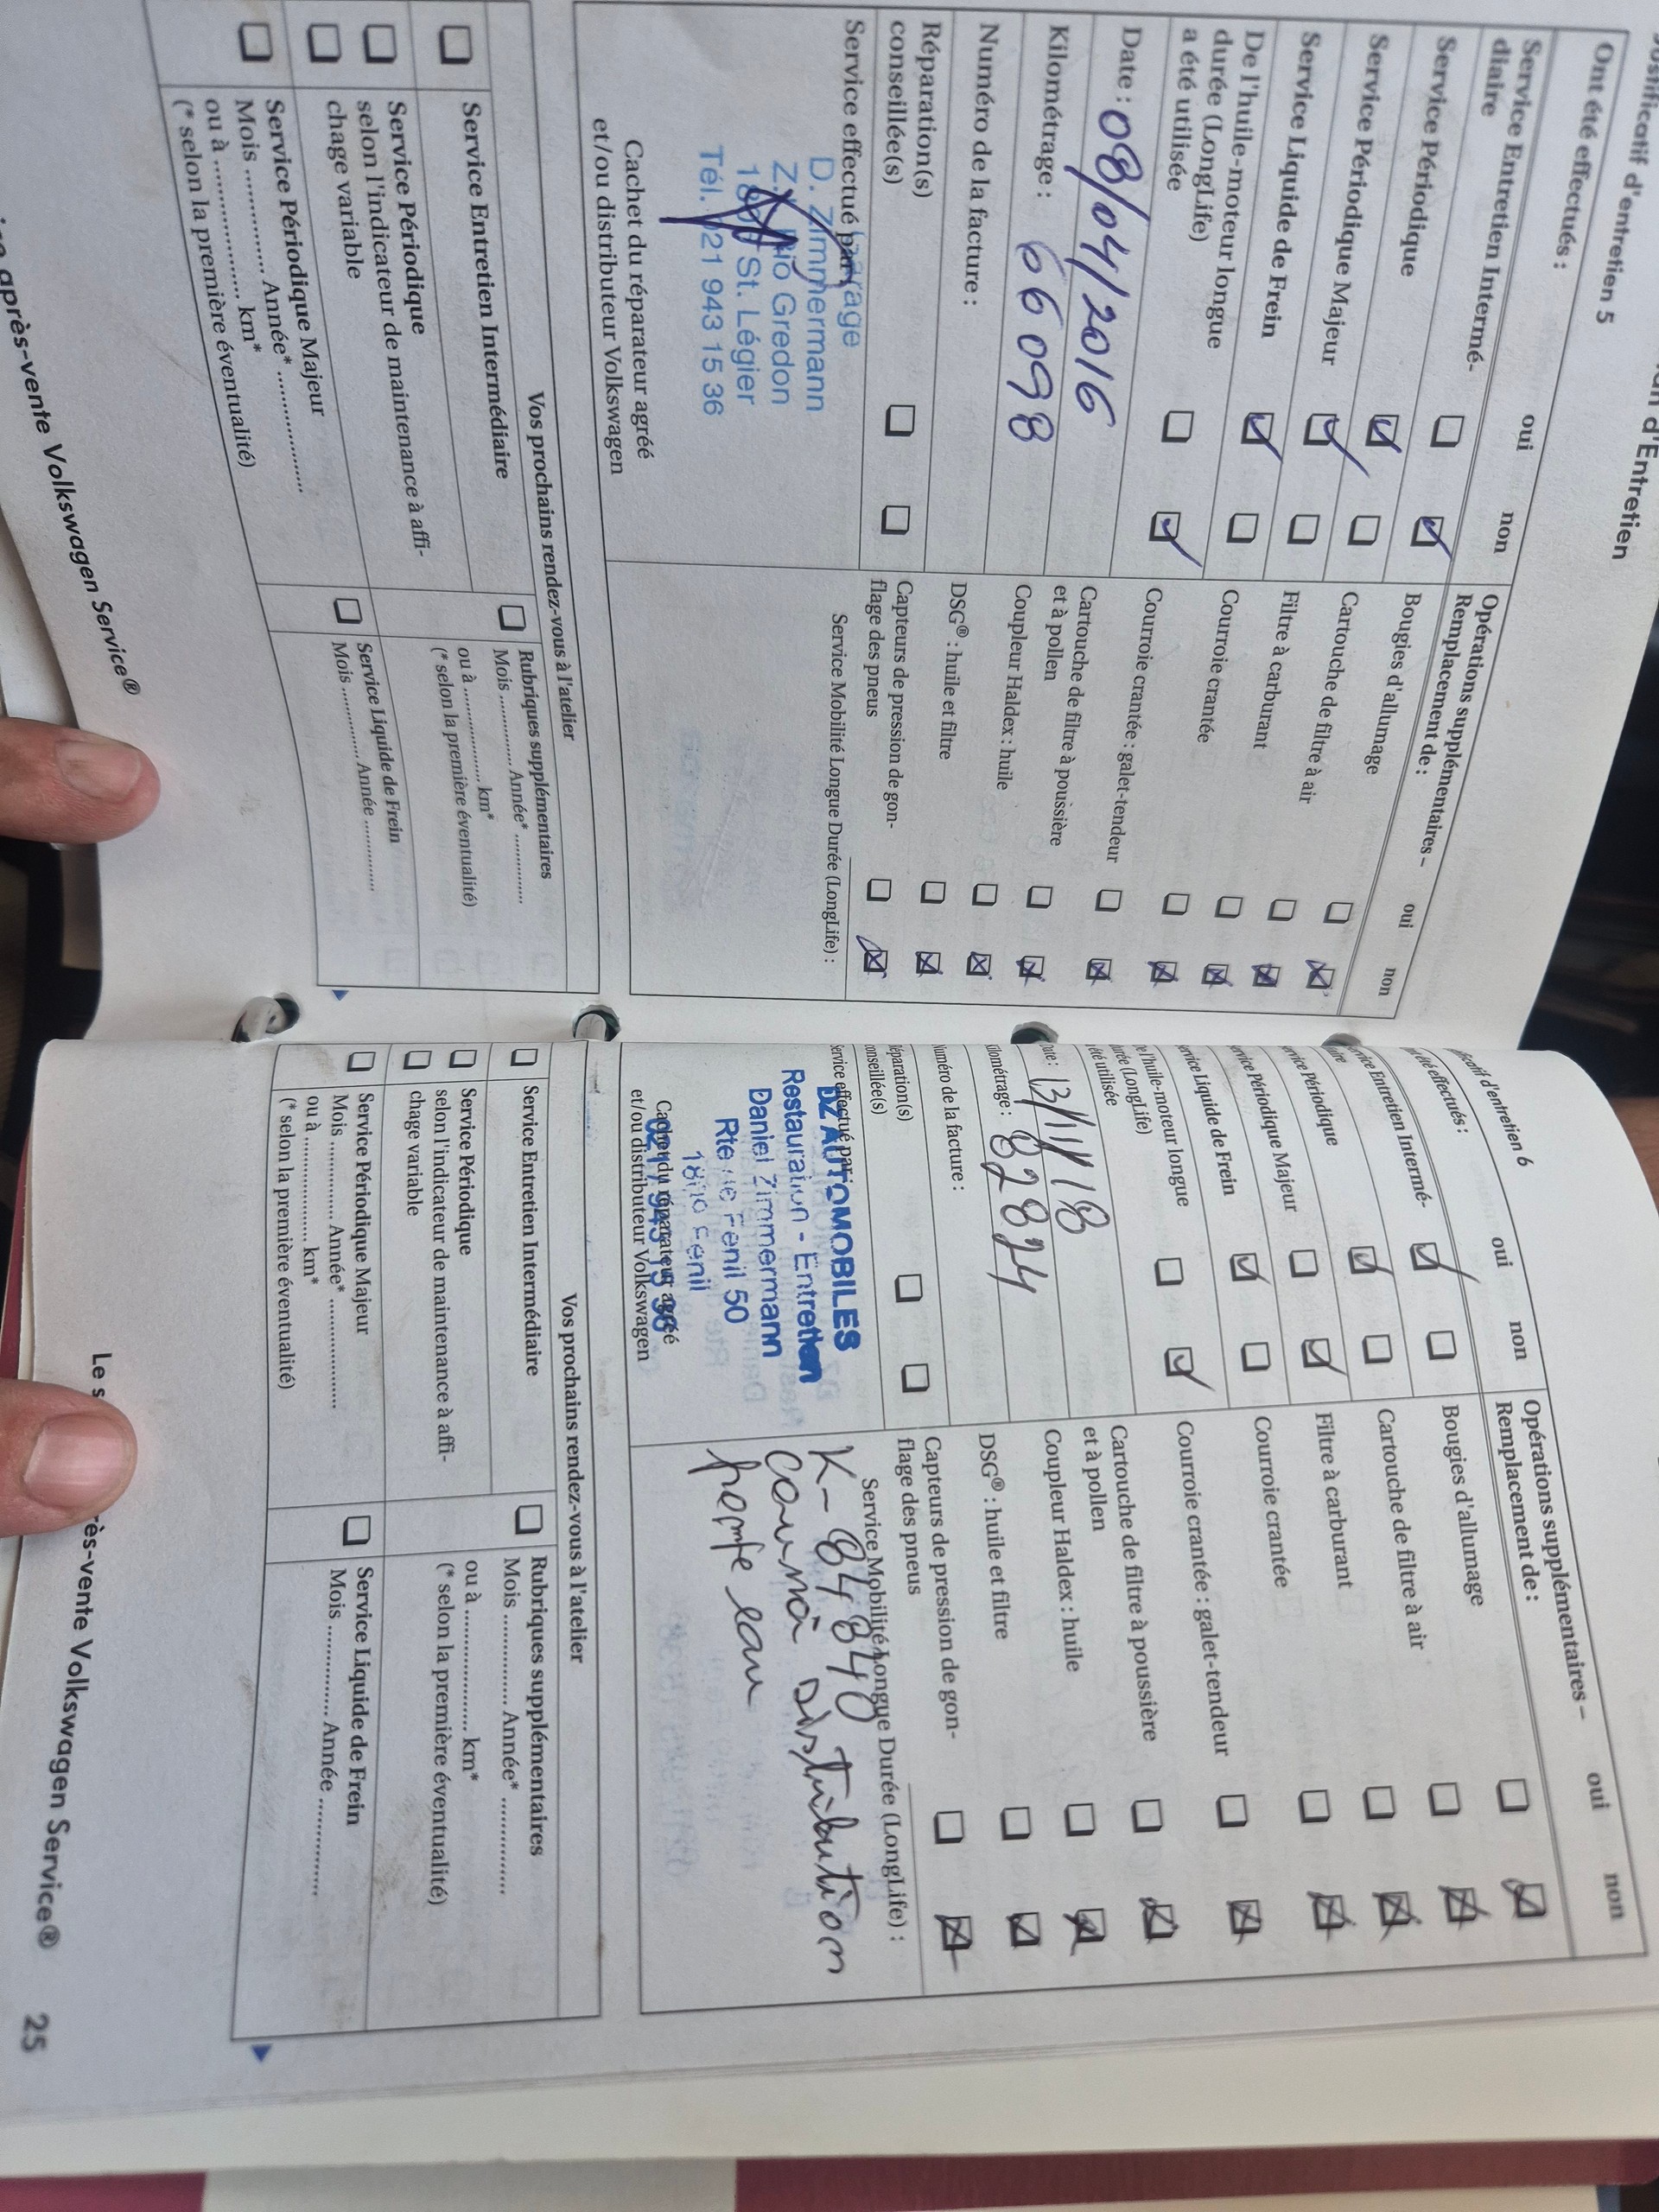 d'Entretien
d'entretien 5
Ont été effectués :
oui
non
Service Entretien Intermé-
diaire
Service Périodique
Service Périodique Majeur
Service Liquide de Frein
De l'huile-moteur longue
durée (LongLife)
a été utilisée
Date : 08/04/2016
Kilométrage : 66098
Numéro de la facture :
Réparation(s)
conseillée(s)
Service effectué par
Garage
D. Zimmermann
Z.I. Rio Gredon
St. Légier
Tél. 021 943 15 36
Cachet du réparateur agréé
et/ou distributeur Volkswagen
Opérations supplémentaires –
Remplacement de :
oui
non
Bougies d'allumage
Cartouche de filtre à air
Filtre à carburant
Courroie crantée
Courroie crantée : galet-tendeur
Cartouche de filtre à poussière
et à pollen
Coupleur Haldex : huile
DSG® : huile et filtre
Capteurs de pression de gon-
flage des pneus
Service Mobilité Longue Durée (LongLife) :
Vos prochains rendez-vous à l'atelier
Service Entretien Intermédiaire
Service Périodique
selon l'indicateur de maintenance à affi-
chage variable
Service Périodique Majeur
Mois ............... Année* ...............
ou à ............... km*
(* selon la première éventualité)
Rubriques supplémentaires
Mois ............... Année* ...............
ou à ............... km*
(* selon la première éventualité)
Service Liquide de Frein
Mois ............... Année ...............
après-vente Volkswagen Service®
d'entretien 6
été effectués :
oui
non
Service Entretien Intermé-
Service Périodique
Service Périodique Majeur
Service Liquide de Frein
De l'huile-moteur longue
durée (LongLife)
été utilisée
Date : 13/11/18
Kilométrage : 82824
Numéro de la facture :
Réparation(s)
conseillée(s)
Service effectué par :
DZ AUTOMOBILES
Restauration - Entretien
Daniel Zimmermann
Rte de Fenil 50
1806 Fenil
021 943 15 36
Cachet du réparateur agréé
et/ou distributeur Volkswagen
Opérations supplémentaires –
Remplacement de :
oui
non
Bougies d'allumage
Cartouche de filtre à air
Filtre à carburant
Courroie crantée
Courroie crantée : galet-tendeur
Cartouche de filtre à poussière
et à pollen
Coupleur Haldex : huile
DSG® : huile et filtre
Capteurs de pression de gon-
flage des pneus
Service Mobilité Longue Durée (LongLife) :
K- 84840
distribution
eau
Vos prochains rendez-vous à l'atelier
Service Entretien Intermédiaire
Service Périodique
selon l'indicateur de maintenance à affi-
chage variable
Service Périodique Majeur
Mois ............... Année* ...............
ou à ............... km*
(* selon la première éventualité)
Rubriques supplémentaires
Mois ............... Année* ...............
ou à ............... km*
(* selon la première éventualité)
Service Liquide de Frein
Mois ............... Année ...............
Le s
rès-vente Volkswagen Service® 25